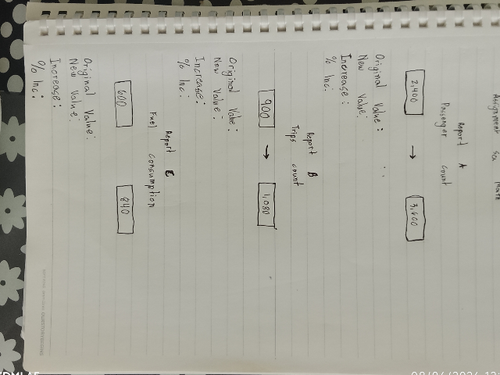 Assignment Math
Report A
Passenger Count
2,400 → 3,600
Original Value:
New Value:
Increase:
% Inc:
Report B
Trips Count
900 → 1,080
Original Value:
New Value:
Increase:
% Inc:
Report C
Fuel Consumption
600 840
Original Value:
New Value:
Increase:
% Inc: